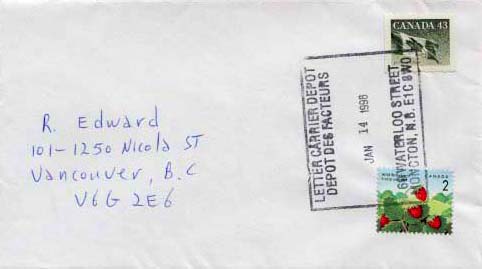 CANADA 43
LETTER CARRIER DEPOT
DEPOT DES FACTEURS
JAN 14 1998
WATERLOO STREET
MONCTON, N.B. E1C 8W0
R. Edward
101-1250 Nicola ST
Vancouver, B.C
V6G 2E6
CANADA
2